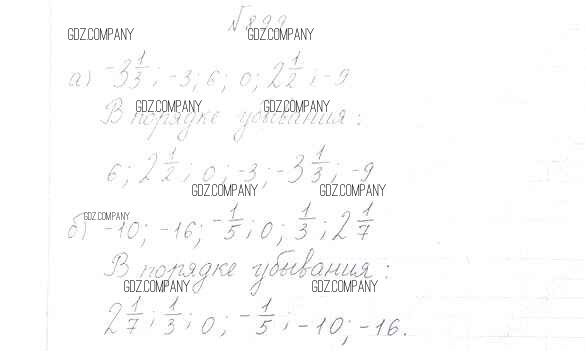 №899
GDZ.COMPANY GDZ.COMPANY
а) -3 1/3; -3; 6; 0; 2 1/2; -9
GDZ.COMPANY GDZ.COMPANY
В порядке убывания:
6; 2 1/2; 0; -3; -3 1/3; -9
GDZ.COMPANY GDZ.COMPANY
GDZ.COMPANY
б) -10; -16; -1/5; 0; 1/3; 2 1/7
В порядке убывания:
GDZ.COMPANY GDZ.COMPANY
2 1/7; 1/3; 0; -1/5; -10; -16.